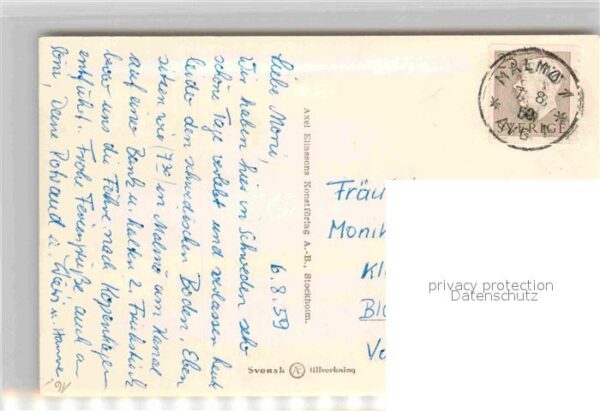 6.8.59
Liebe Moni,
Wir haben hier in Schweden sehr
schöne Tage verlebt und verlassen heut
leider den schwedischen Boden. Eben
sitzen wir (7³⁰) in Malmö am Kanal
auf einer Bank u. halten 2. Frühstück
bevor uns die Fähre nach Kopenhagen
entführt. Frohe Feriengrüße, auch an
Deine u. Hanne
Axel Eliassons Konstförlag A.-B., Stockholm.
Svensk Æ tillverkning
MALMÖ 1
8.
59
SVERIGE
Fräu
Monik
Kl
privacy protection
Datenschutz